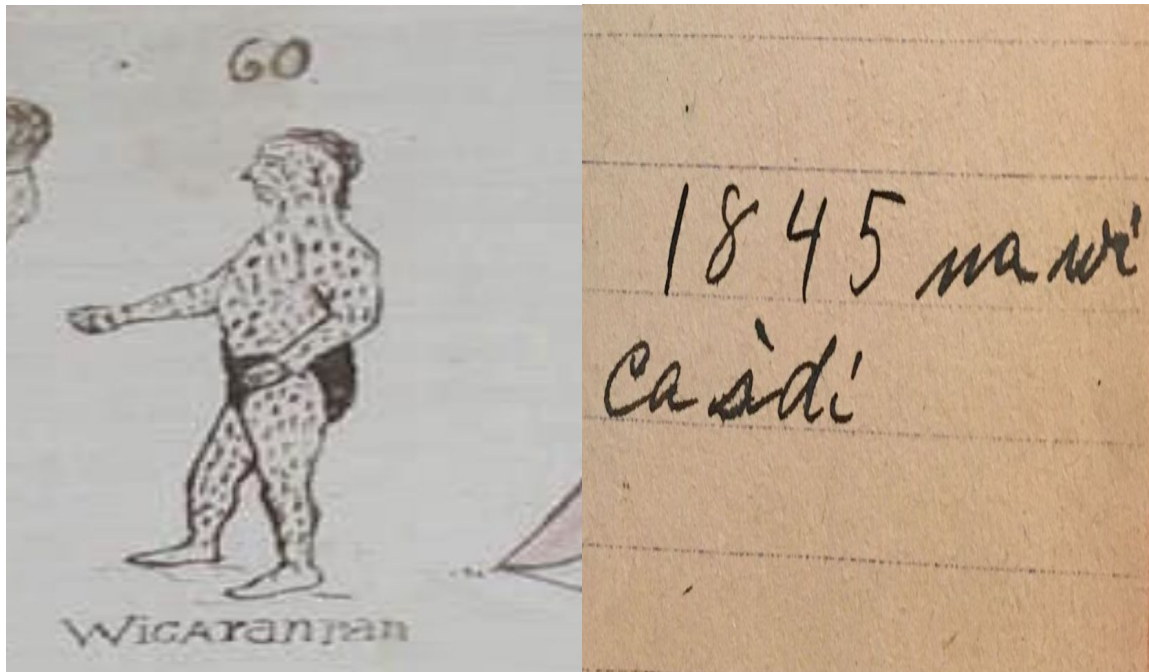 60
WicAranpan
1845 na wi'
Ca s̀di'